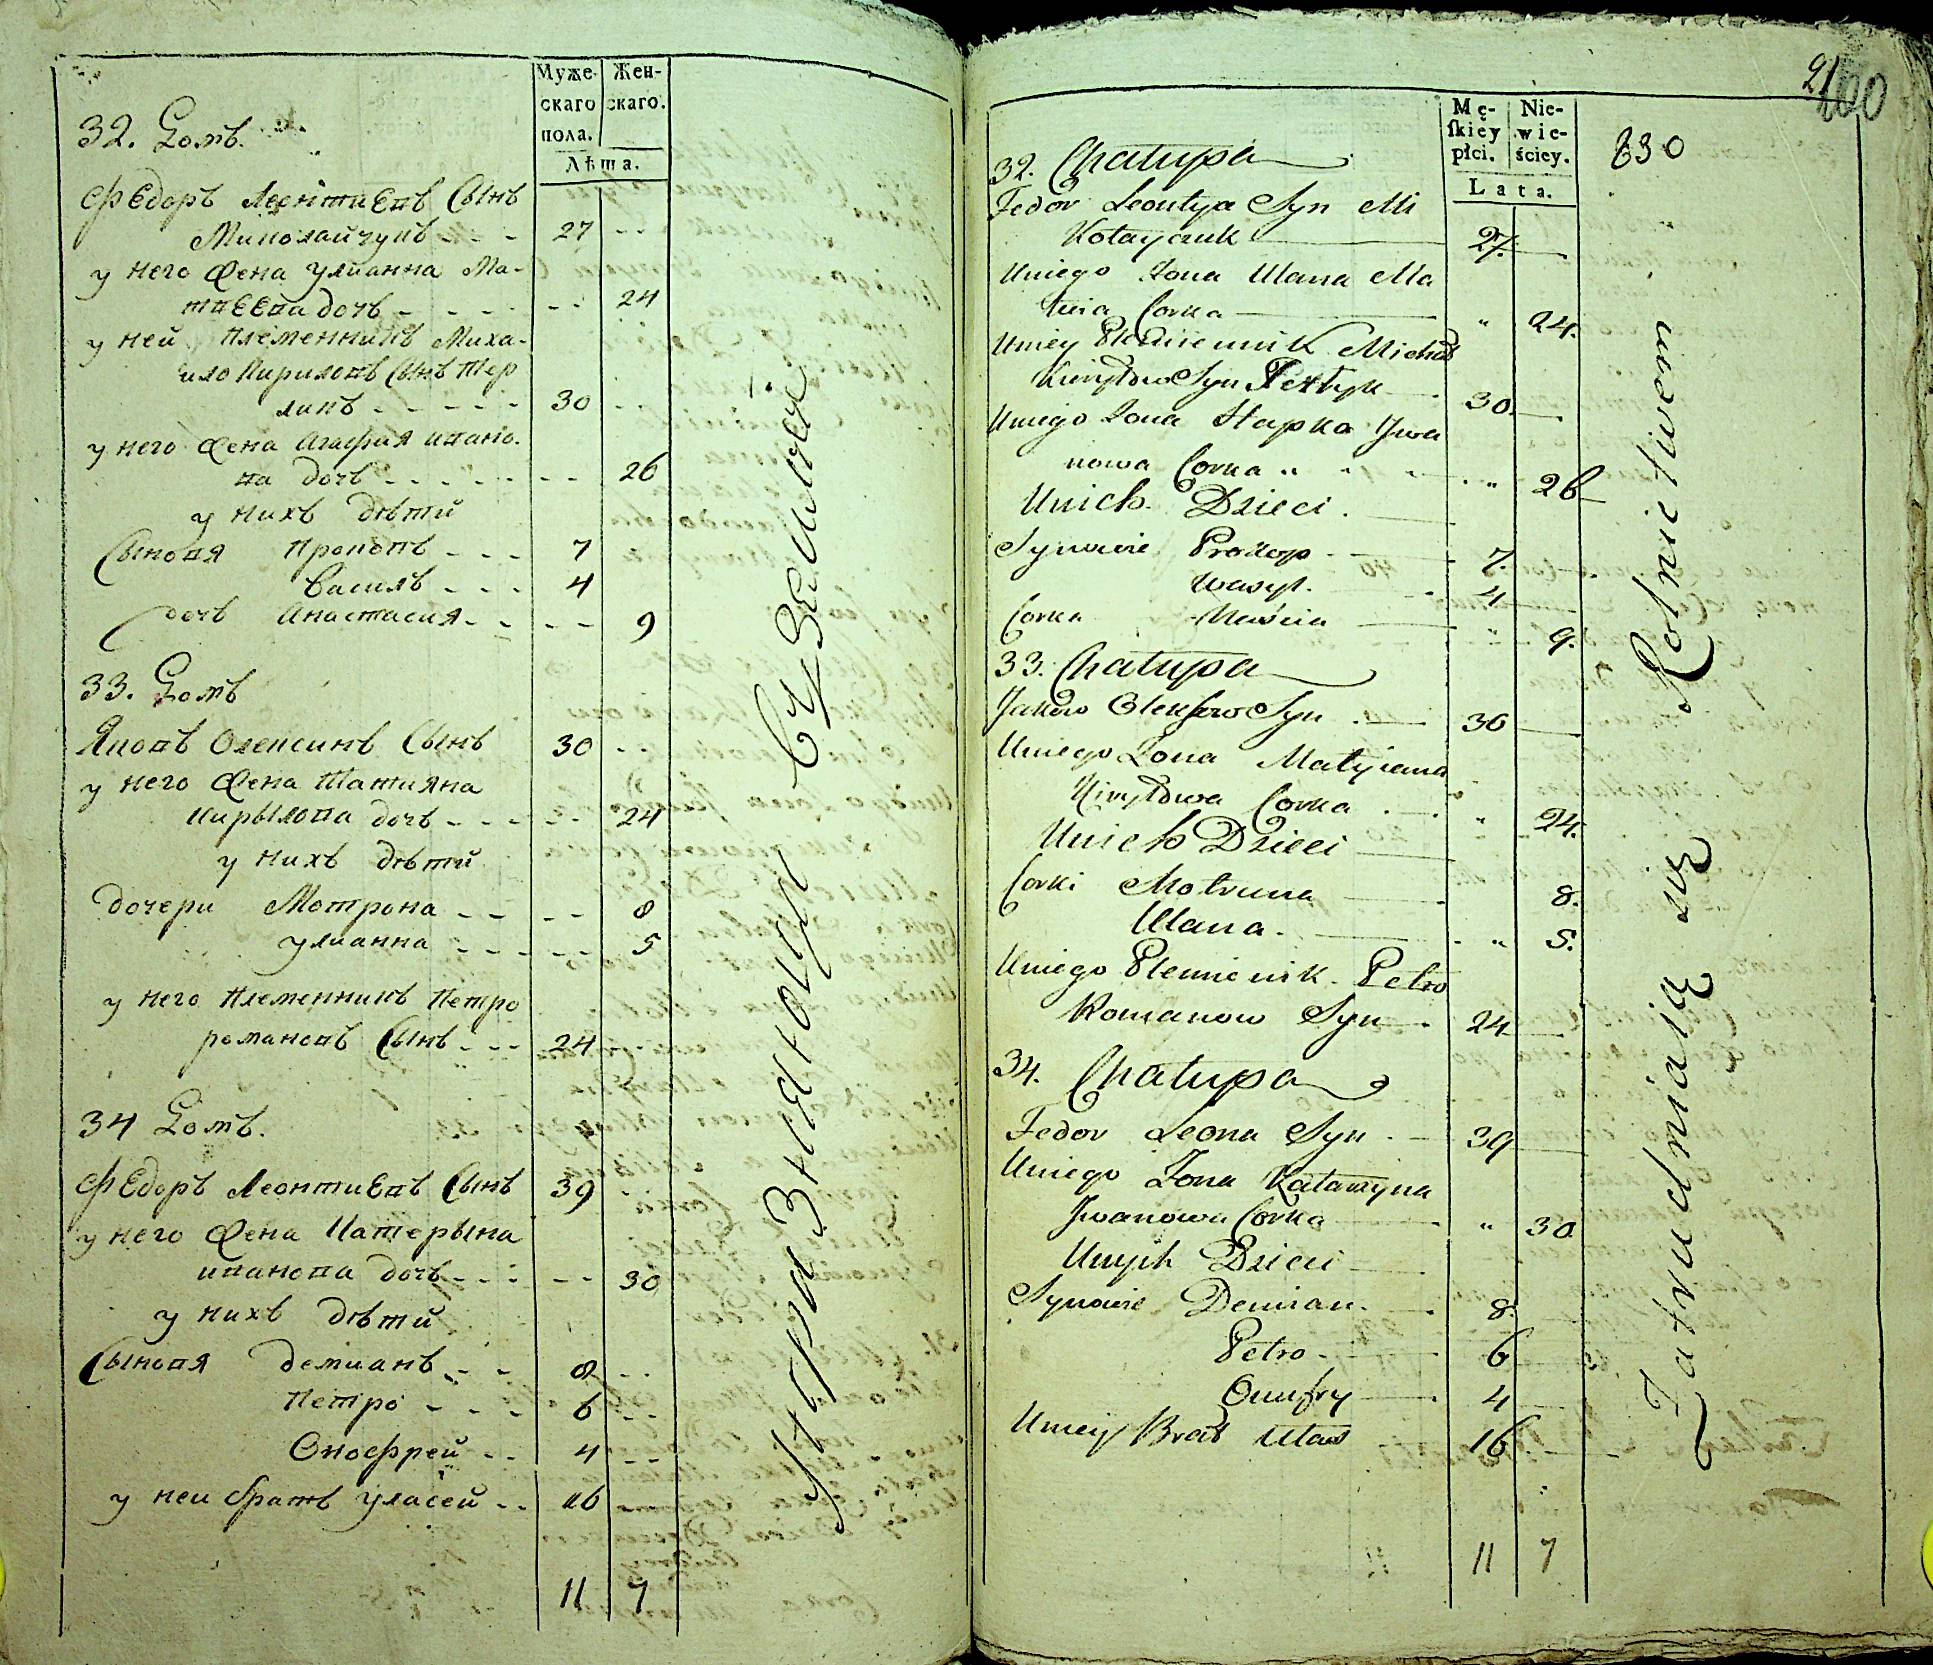 Муже-
скаго
пола.
Жен-
скаго.
Лѣта.
32. Домъ.
Федоръ Леонтиевъ Сынъ
Миколайчукъ - - - 27 - -
у него жена улианна Ма-
твеева дочь - - - - - 24
у ней племенникъ Миха-
ило Кириловъ Сынъ
30 - -
у него жена Агафия ивано-
ва дочь - - - - - - 26
у нихъ дѣти
Сыновя Прокопъ - - - 7
Василь - - - 4
дочь Анастасия - - - - 9
33. Домъ
Яковъ Олексинъ Сынъ 30 - -
у него жена Татияна
Кирылова дочь - - - - - 24
у нихъ дѣти
дочери Мотрона - - - - 8
улианна - - - - - 5
у него племенникъ Петро
романовъ Сынъ - - - 24 - -
34 Домъ.
Федоръ Леонтиевъ Сынъ 39 -
у него жена Катерына
иванова дочь - - - - - 30
у нихъ дѣти
Сыновя Демианъ - - 8 - -
Петро - - - 6 - -
Онофрей - - 4 - -
у неи братъ уласей - - 16
11 7
упражняющи сузѣмлѣ
21
100
Mę-
skiey
płci.
Nie-
wie-
ściey.
Lata.
630
32. Chałupa
Fedor Leontya Syn Mi
Kołayczuk 27.
Uniego Zona Ulana Ma
twia Corka " 24.
Uniey Plemiennik Michał
Kiryłow Syn 30.
Uniego Zona Hapka Jwa
nowa Corka " " " 26
Unich Dzieci.
Synowie Prokop 7.
Wasyl. 4
Corka Naścia " 9.
33. Chałupa
Jakow Olexow Syn 30
Uniego Zona Matyiana
Kiryłowa Corka " 24.
Unich Dzieci
Corki Motruna 8.
Ulana. " 5.
Uniego Plemienik Petro
Romanow Syn 24
34. Chałupa
Fedor Leona Syn 39
Uniego Zona Katarzyna
Jwanowa Corka " 30
Unych Dzieci
Synowie Demian. 8.
Petro 6
Onufry 4
Uniey Brat Ułas 16
11 7
Zatrudniaią się Rolnictwem